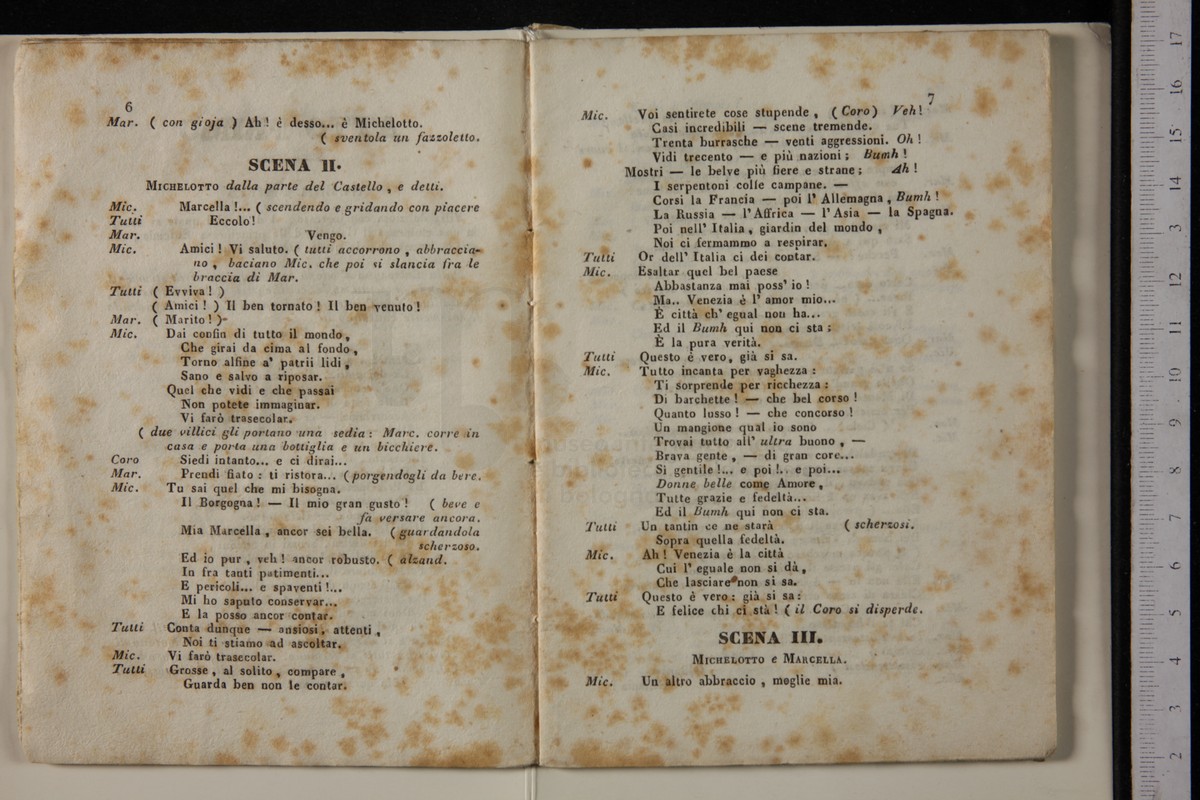 6
Mar. ( con gioja ) Ah ! è desso... è Michelotto.
( sventola un fazzoletto.
SCENA II.
MICHELOTTO dalla parte del Castello , e detti.
Mic. Marcella !... ( scendendo e gridando con piacere
Tutti Eccolo !
Mar. Vengo.
Mic. Amici ! Vi saluto. ( tutti accorrono , abbraccia-
no , baciano Mic. che poi si slancia fra le
braccia di Mar.
Tutti ( Evviva ! )
( Amici ! ) Il ben tornato ! Il ben venuto !
Mar. ( Marito ! )
Mic. Dai confin di tutto il mondo ,
Che girai da cima al fondo ,
Torno alfine a' patrii lidi ,
Sano e salvo a riposar.
Quel che vidi e che passai
Non potete immaginar.
Vi farò trasecolar.
( due villici gli portano una sedia : Marc. corre in
casa e porta una bottiglia e un bicchiere.
Coro Siedi intanto... e ci dirai...
Mar. Prendi fiato : ti ristora... ( porgendogli da bere.
Mic. Tu sai quel che mi bisogna.
Il Borgogna ! — Il mio gran gusto ! ( beve e
fa versare ancora.
Mia Marcella , ancor sei bella. ( guardandola
scherzoso.
Ed io pur , veh ! ancor robusto. ( alzand.
In fra tanti patimenti...
E pericoli... e spaventi !...
Mi ho saputo conservar...
E la posso ancor contar.
Tutti Conta dunque — ansiosi , attenti ,
Noi ti stiamo ad ascoltar.
Mic. Vi farò trasecolar.
Tutti Grosse , al solito , compare ,
Guarda ben non le contar.
7
Mic. Voi sentirete cose stupende , ( Coro ) Veh !
Casi incredibili — scene tremende.
Trenta burrasche — venti aggressioni. Oh !
Vidi trecento — e più nazioni ; Bumh !
Mostri — le belve più fiere e strane ; Ah !
I serpentoni colle campane. —
Corsi la Francia — poi l' Allemagna , Bumh !
La Russia — l' Affrica — l' Asia — la Spagna.
Poi nell' Italia , giardin del mondo ,
Noi ci fermammo a respirar.
Tutti Or dell' Italia ci dei contar.
Mic. Esaltar quel bel paese
Abbastanza mai poss' io !
Ma.. Venezia è l' amor mio...
È città ch' egual non ha...
Ed il Bumh qui non ci sta ;
È la pura verità.
Tutti Questo è vero , già si sa.
Mic. Tutto incanta per vaghezza :
Ti sorprende per ricchezza :
Di barchette ! — che bel corso !
Quanto lusso ! — che concorso !
Un mangione qual io sono
Trovai tutto all' ultra buono , —
Brava gente , — di gran core...
Si gentile !... e poi !.. e poi...
Donne belle come Amore ,
Tutte grazie e fedeltà...
Ed il Bumh qui non ci sta.
Tutti Un tantin ce ne starà ( scherzosi.
Sopra quella fedeltà.
Mic. Ah ! Venezia è la città
Cui l' eguale non si dà ,
Che lasciare non si sa.
Tutti Questo è vero : già si sa :
E felice chi ci stà ! ( il Coro si disperde.
SCENA III.
MICHELOTTO e MARCELLA.
Mic. Un altro abbraccio , moglie mia.